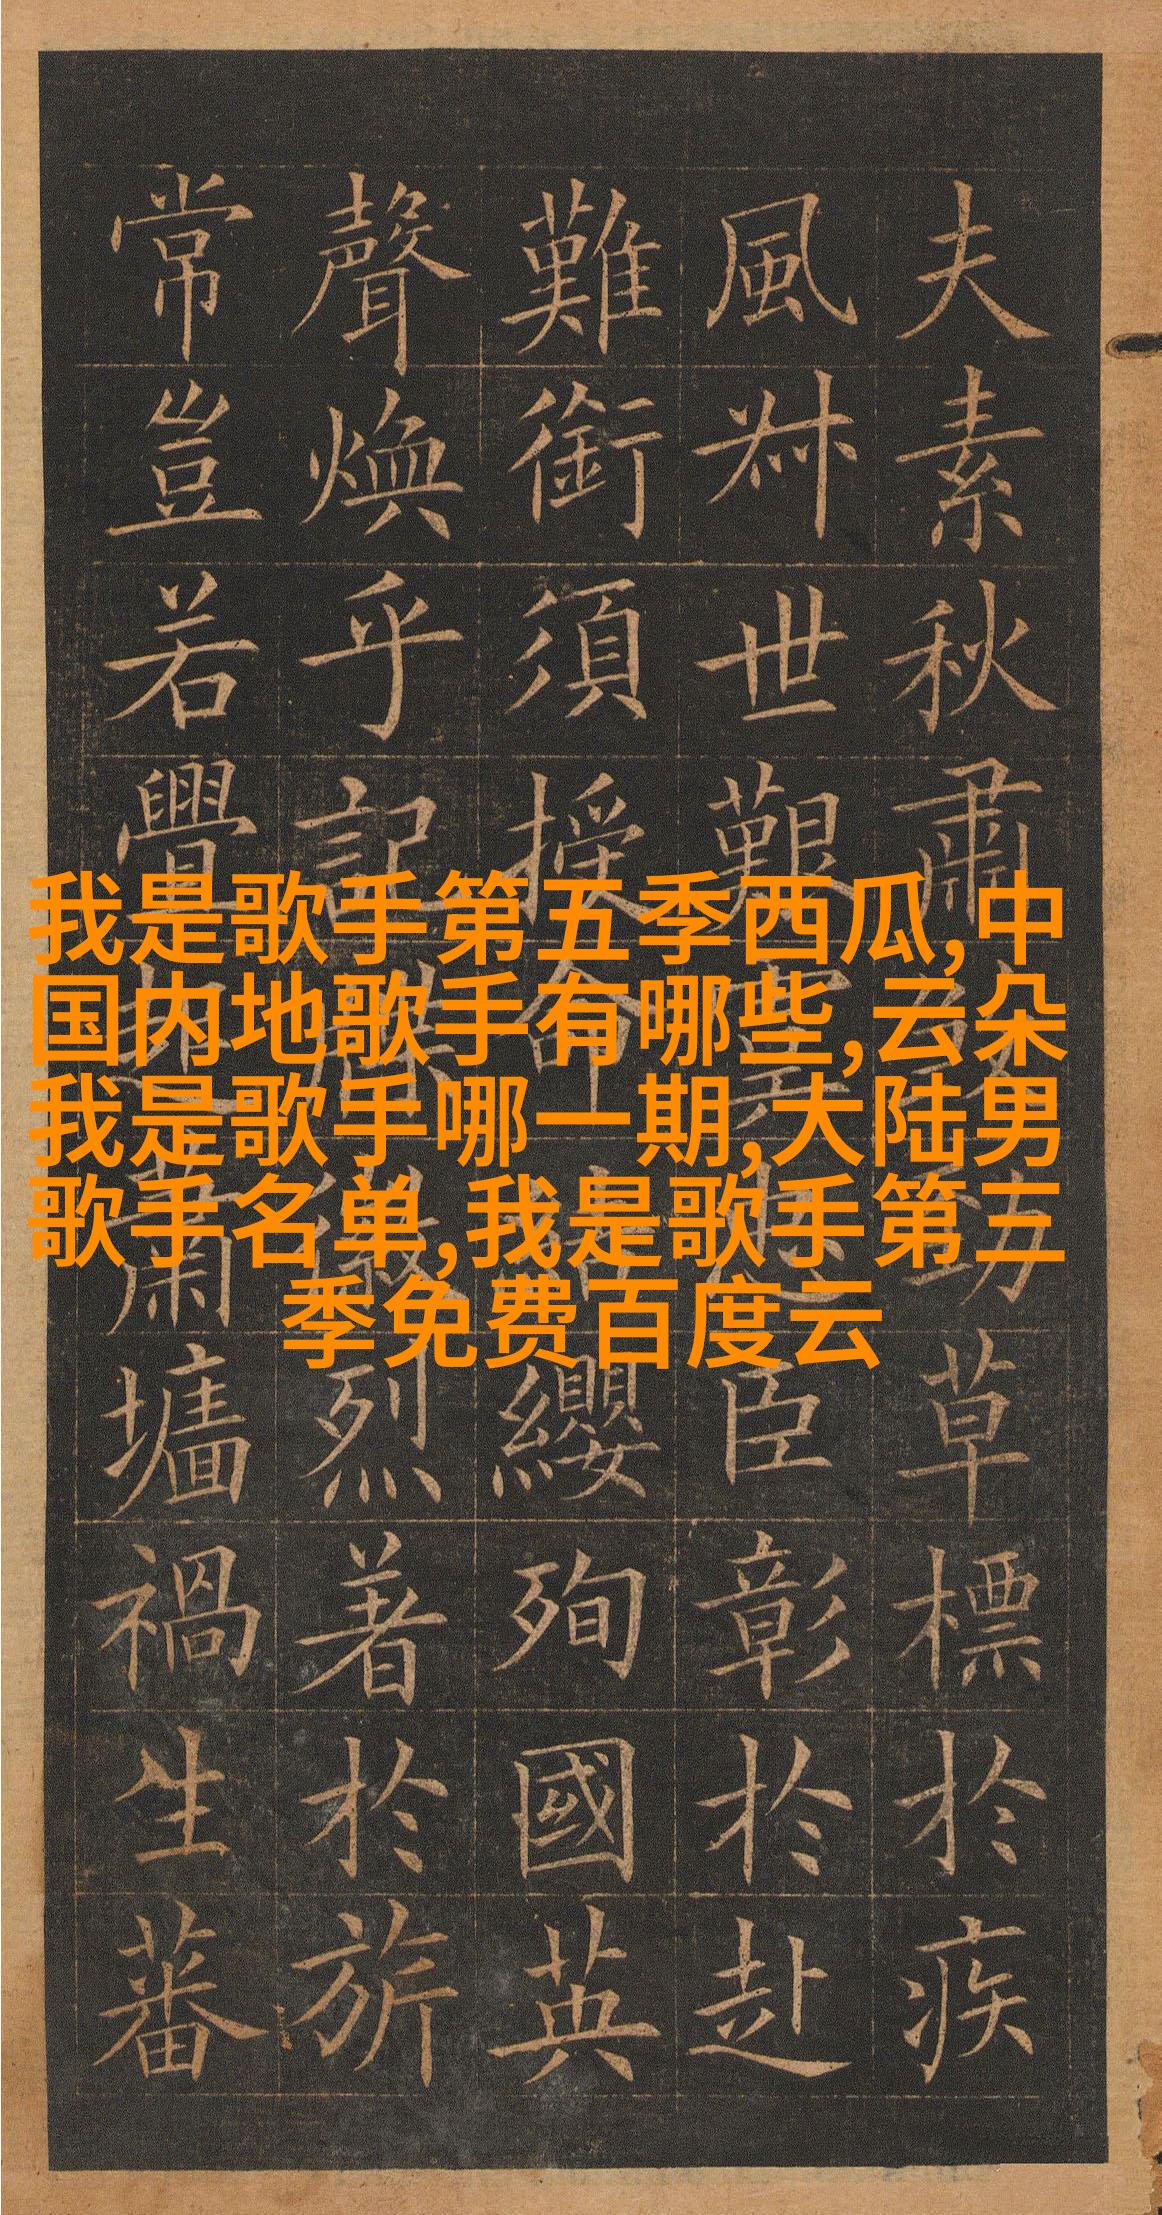 夫素秋肅勁草標於疾
風叔世艱臣彰於赴
難銜須授命纓殉國英
聲煥乎記徽烈著於旂
常豈若舋蕭墻禍生蕃
我是歌手第五季西瓜,中
国内地歌手有哪些,云朵
我是歌手哪一期,大陆男
歌手名单,我是歌手第三
季免费百度云